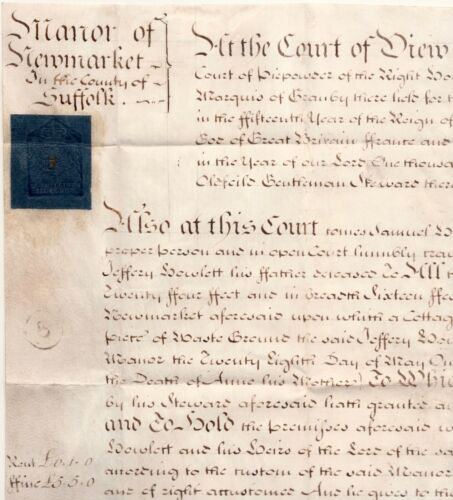 Manor of
Newmarket
In the County of
Suffolk.
At the Court of View
Court of Piepowder of the Right Ho
Marquis of Granby there held for t
in the fifteenth Year of the Reign of
God of Great Britain ffrance and
in the Year of our Lord One thousa
Oldfeild Gentleman Steward there
Also at this Court comes Samuel
proper person and in open Court humbly
Jeffery Howlett his ffather deceased To All
Twenty ffour ffeet and in breadth Sixteen ffe
Newmarket aforesaid upon which a Cottag
piece of Waste Ground the said Jeffery How
Manor the Twenty Eighth Day of May On
the Death of Anne his Mother) To Whi
by his Steward aforesaid hath granted a
and To Hold the premisses aforesaid
Howlett and his Heirs of the Lord of the
according to the custom of the said Manor
and of right accustomed And he gives to th
Rent £0.1.0
ffine £3.3.0